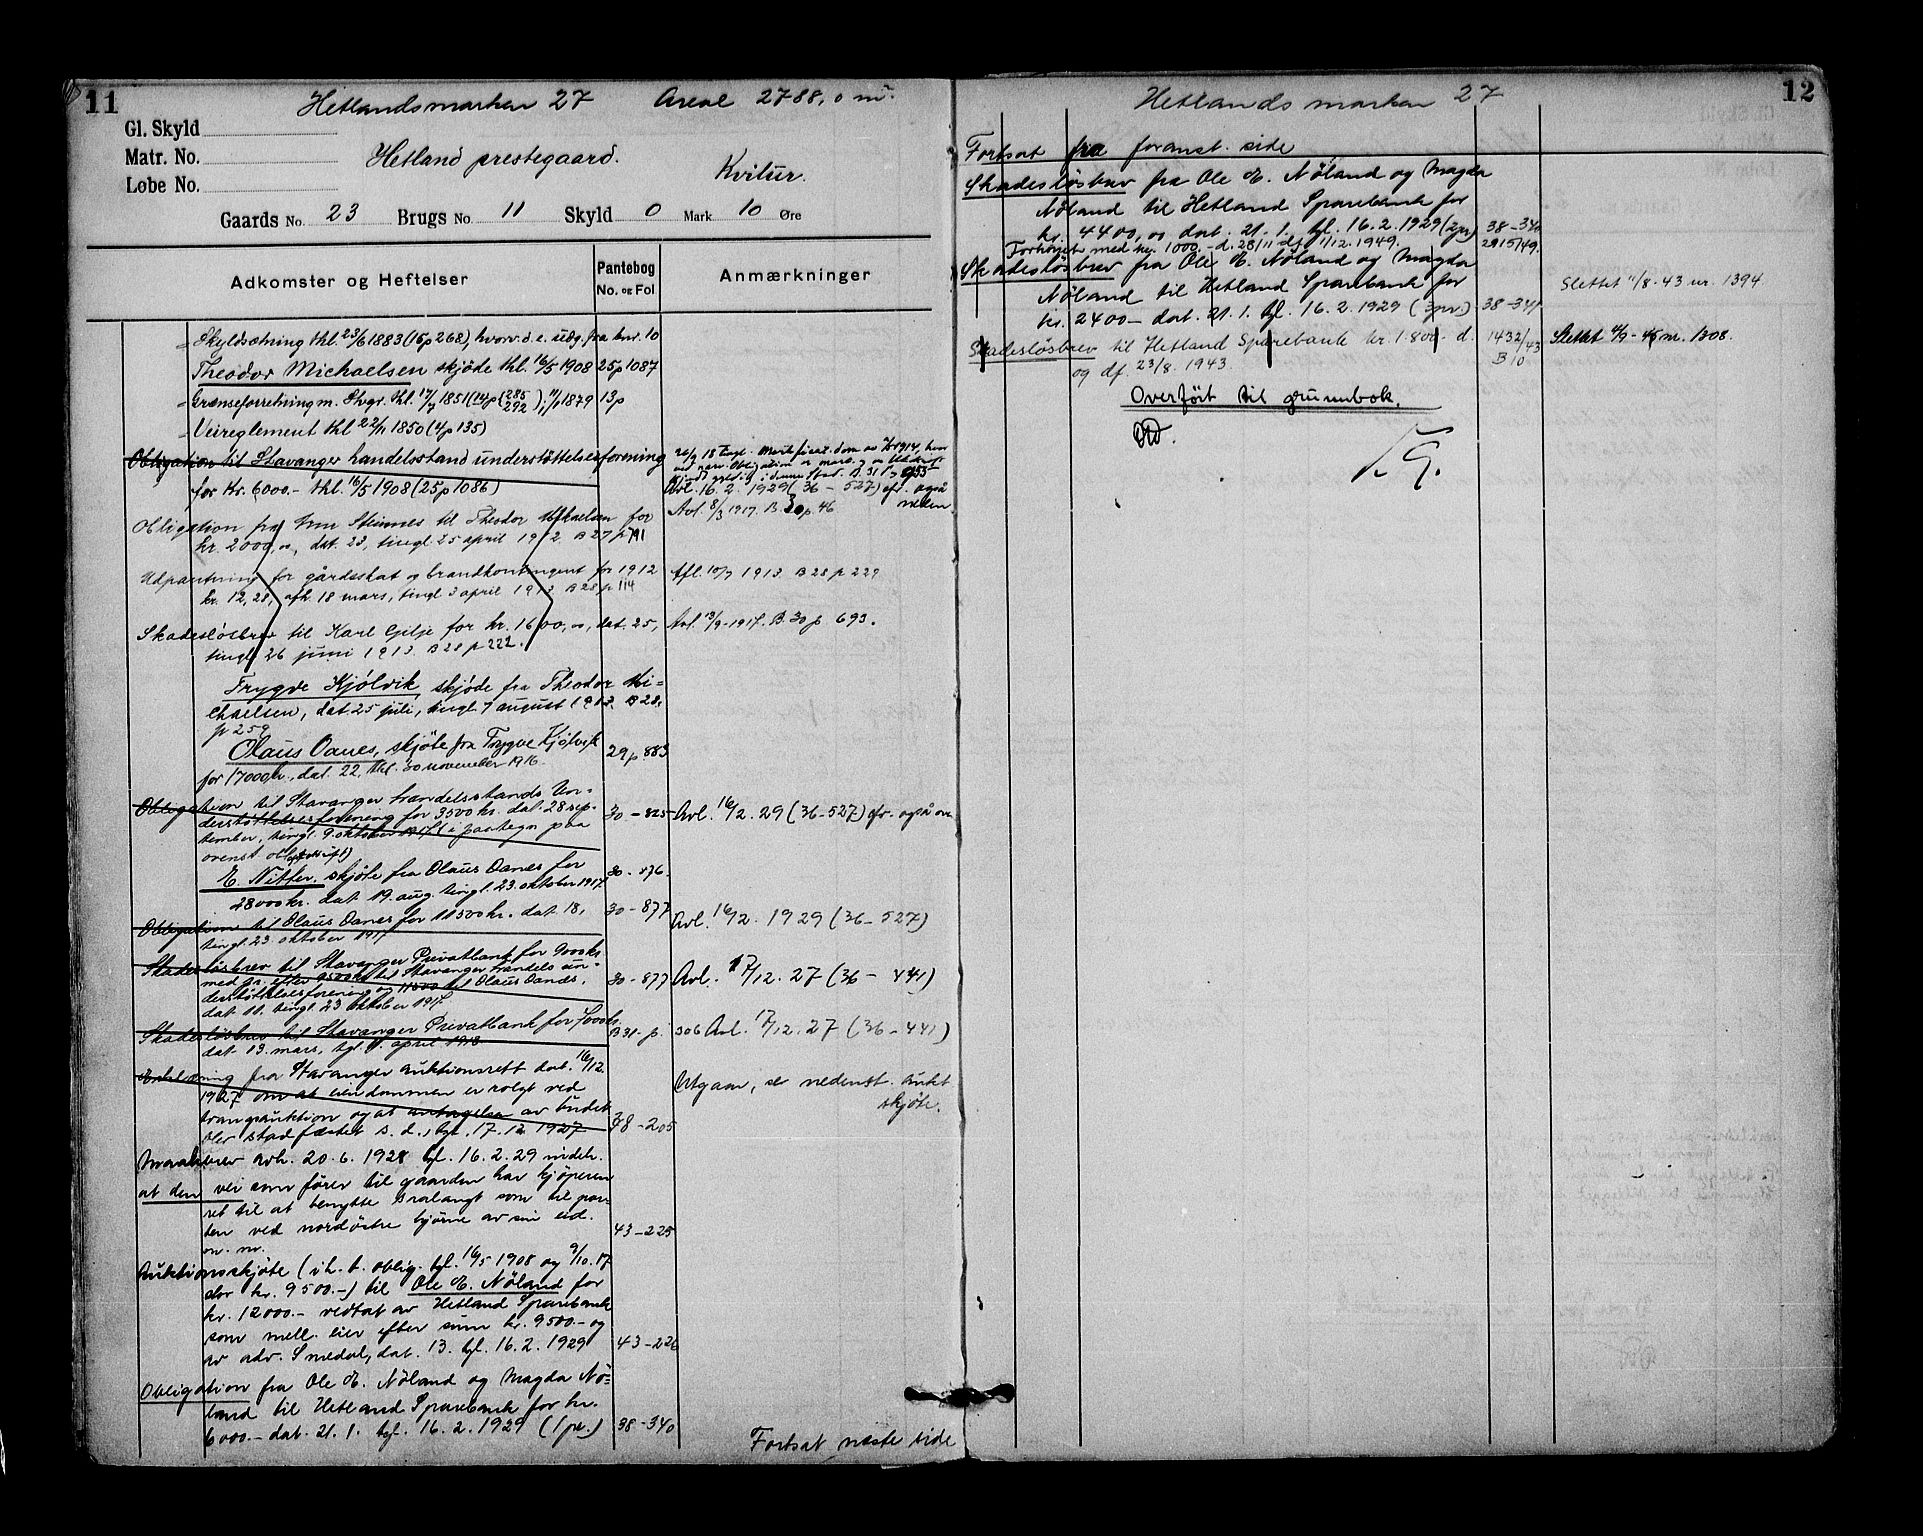 11
Hetlandsmarken 27 Areal 2788,0 m².
Gl. Skyld
Matr. No.
Løbe No.
Hetland prestegaard.
Kvitur.
Gaards No. 23 Brugs No. 11 Skyld 0 Mark 10 Øre
Adkomster og Heftelser
Pantebog No. og Fol
Anmærkninger
Skyldsætning thl. 23/6 1883 (15 p 268), hvorv. d. e. udg. fra bnr. 10
Theodor Michaelsen skjøde thl. 16/5 1908 25 p 1087
Grænseforretning m. Stvgr. thl. 17/7 1851 (14 p (285 292), 1879 13 p
Veireglement thl 22/11 1850 (4 p 135)
Obligation til Stavanger handelsstand understøttelsesforening
for Kr. 6000.- thl. 16/5 1908 (25 p 1086)
Avl. 16. 2. 1929 (36 - 527) cfr. også neden
Obligation fra Steinnes til Theodor Michaelsen for
kr. 2000,00, dat. 23, tingl. 25 april 1912 B 27 p 791
Avl. 8/3 1917. B. 30 p. 46
Udpantning for gårdsskat og brandkontingent for 1912
kr. 12,28, afh. 18 mars, tingl 3 april 1913 B 28 p 114
Afl. 10/7 1913 B 28 p 229
Skadesløsbrev til Karl Gilje for kr. 1600,00, dat. 25,
tingl 26 juni 1913 B 28 p 222.
Avl. 13/9-1917. B. 30 p 693.
Trygve Kjölvik, skjøde fra Theodor Mi-
chaelsen, dat. 25 juli, tingl. 7 august 1913. B 28,
p 259
Olaus Oanes, skjøte fra Trygve Kjölvik
for 17000 kr., dat. 22, thl. 30 november 1916.
29 p. 883
Obligation til Stavanger handelsstands Un-
derstøttelsesforening for 3500 kr. dat. 28 sep-
tember, tingl. 9. oktober 1917 (i paategn paa
ovenst obl.
30 - 825
Avl. 16/2. 29 (36-527) cfr. også ov.
E. Nitter. skjøte fra Olaus Oanes for
28000 kr. dat 19. aug. tingl. 23. oktober 1917
30 - 876
Obligation til Olaus Oanes for 11500 kr. dat 18,
tingl. 23 oktober 1917
30 - 877
Avl. 16/2. 1929 (36 - 527)
Skadesløsbrev til Stavanger Privatbank for 9000 kr.
med pr. efter 9500 kr til Stavanger handels un-
derstøttelsesforening og 11500 til Olaus Oanes.
dat. 11. tingl. 23 oktober 1917.
30 - 877
Avl. 17/12. 27 (36 - 441)
Skadesløsbrev til Stavanger Privatbank for 7000 kr.
dat 13. mars, tgl. 11. april 1918
B 31 - p. 306
Avl. 17/12. 27 (36 - 441)
Erklæring fra Stavanger auktionsrett dat. 16/12
1927 om at eiendommen er solgt ved
tvangsauktion og at antagelse av budet
blev stadfæstet s. d., tgl. 17. 12. 1927
38 - 205
Utgaar, se nedenst. aukt
skjøte.
Maalebrev avh. 20. 6. 1928 tgl. 16. 2. 29 indeh.
at den vei som fører til gaarden har kjøperen
ret til at benytte saalangt som til por-
ten ved nordøstre hjørne av sin eid.
m. m.
43 - 225
Auktionsskjøte (i h. t. oblig. tgl. 16/5 1908 og 9/10. 17
stor kr. 9500.-) til Ole E. Nöland for
kr. 12000.- vedtat av Hetland Sparebank
som mell. eier efter sum kr. 9500.- og
av adv. Smedal, dat. 13. tgl. 16. 2. 1929
43 - 226
Obligation fra Ole E. Nöland og Magda Nö-
land til Hetland Sparebank for kr.
6000.- dat. 21. 1. tgl. 16. 2. 1929 (1 pr.)
38 - 340
Fortsat næste side
12
Hetlandsmarken 27
Fortsat fra foranst. side
Skadesløsbrev fra Ole E. Nöland og Magda
Nöland til Hetland Sparebank for
kr. 4400,00 dat. 21. 1. tgl. 16. 2. 1929 (2 pr)
38 - 340
Forhøiet med kr. 1000.- d. 28/11 df. 1/12. 1949.
2915/49.
Skadesløsbrev fra Ole E. Nöland og Magda
Nöland til Hetland Sparebank for
kr. 2400.- dat. 21. 1. tgl. 16. 2. 1929 (3 pr)
38 - 341
Slettet 11/8-43 nr. 1394
Skadesløsbrev til Hetland Sparebank kr. 1.800.- d.
og df. 23/8. 1943.
1432/43
B 10
Slettet 4/9 - 45 nr. 1308.
Overført til grunnbok.